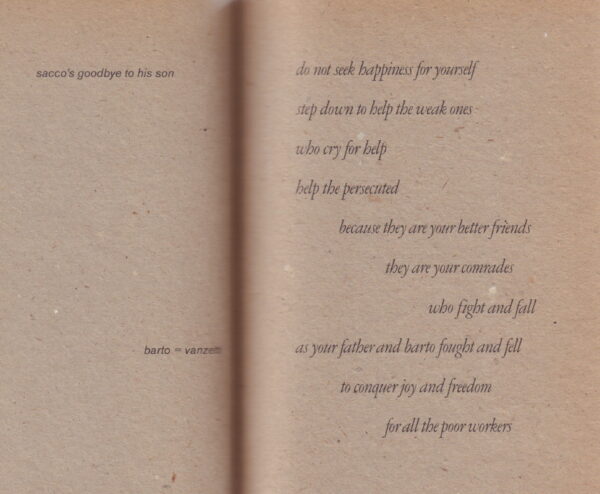 sacco's goodbye to his son
barto = vanzetti
do not seek happiness for yourself
step down to help the weak ones
who cry for help
help the persecuted
because they are your better friends
they are your comrades
who fight and fall
as your father and barto fought and fell
to conquer joy and freedom
for all the poor workers